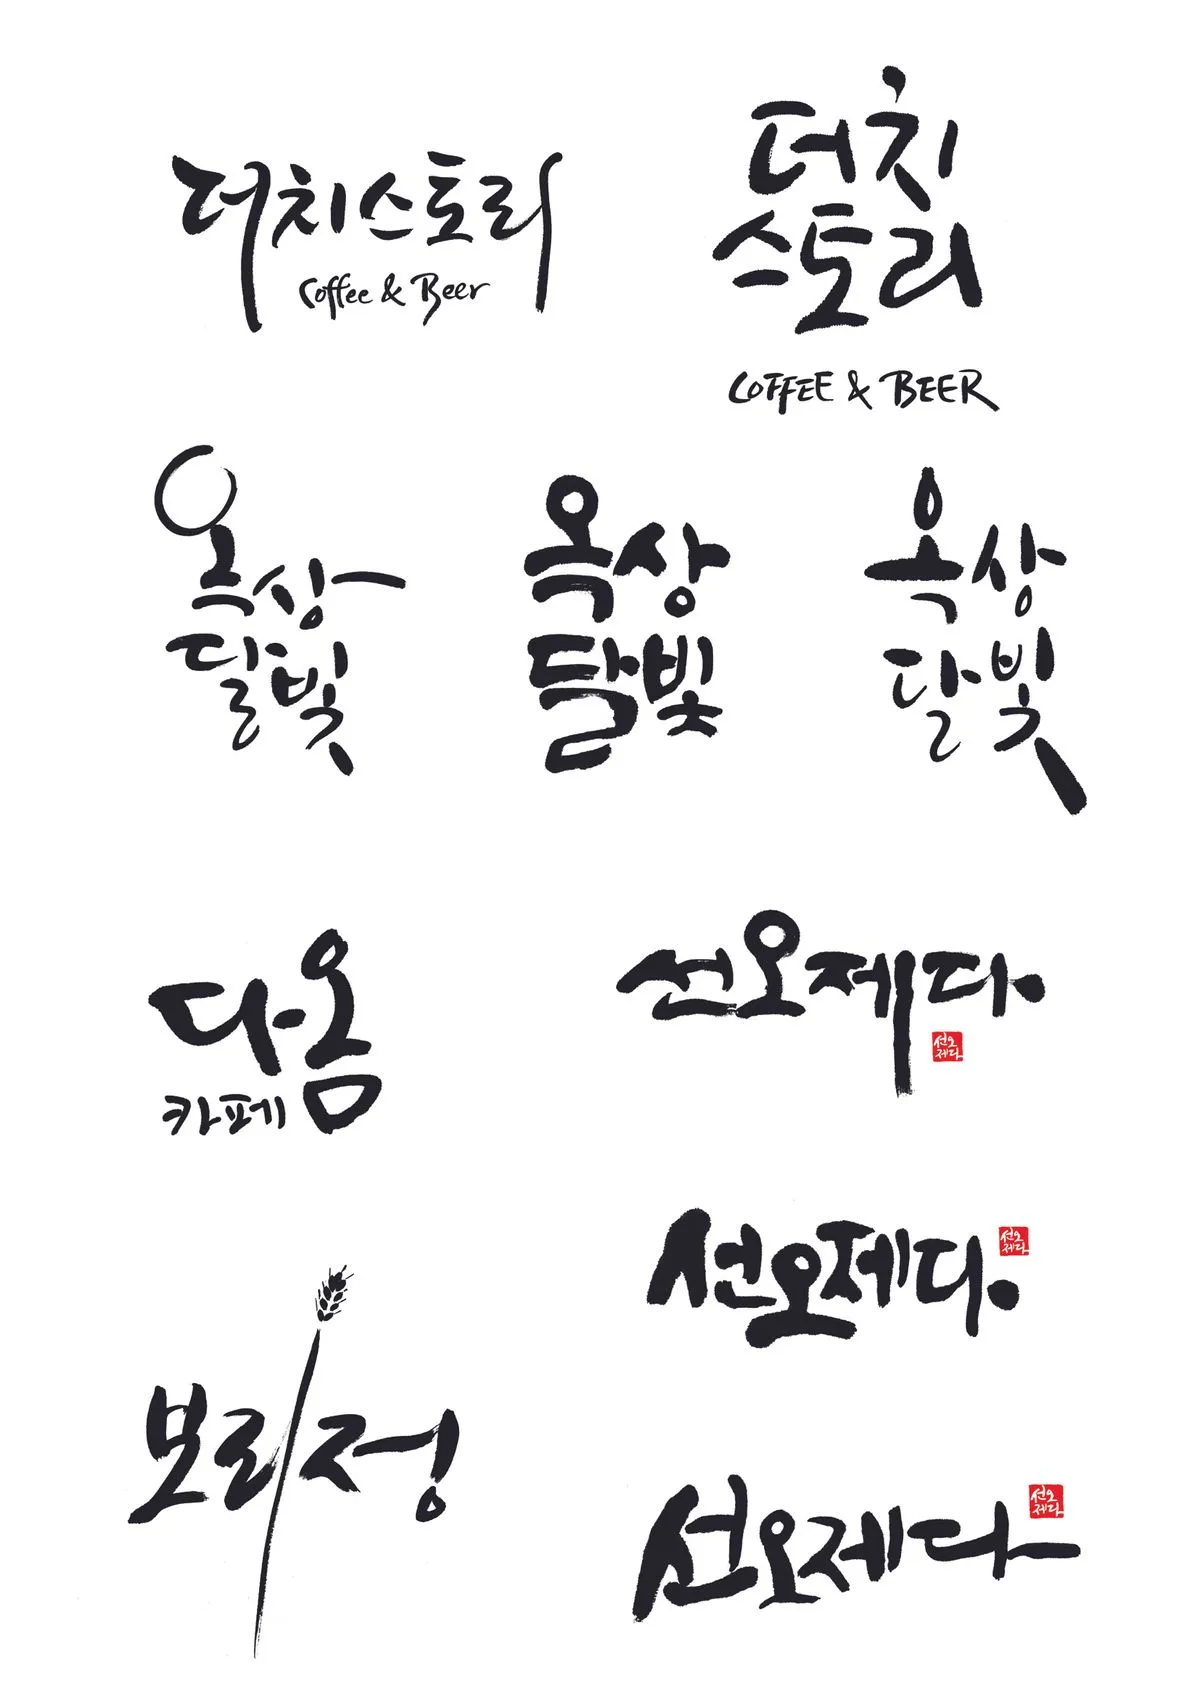 더치스토리
Coffee & Beer
더치
스토리
COFFEE & BEER
옥상
달빛
옥상
달빛
옥상
달빛
다옴
카페
선오제다
선오
제다
선오제다
선오
제다
보리정
선오제다
선오
제다